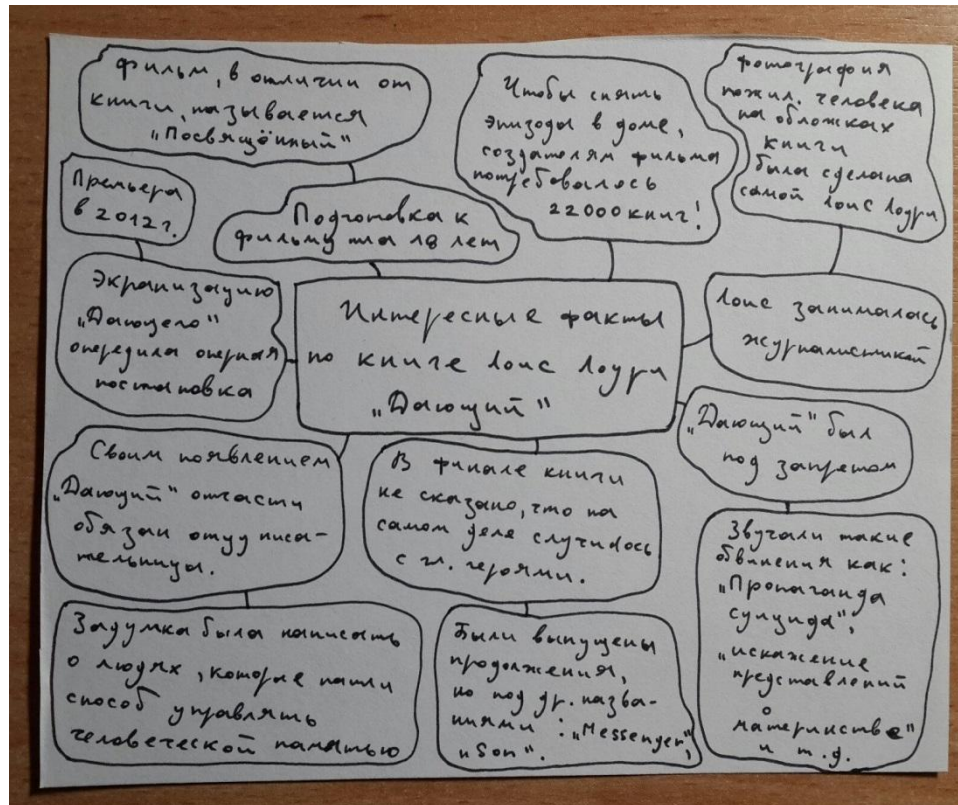 Фильм, в отличии от
книги, называется
„Посвящённый"
Чтобы снять
эпизоды в доме,
создателям фильма
потребовалось
22000 книг!
фотография
пожил. человека
на обложках
книги
была сделана
самой Лоис Лоури
Премьера
в 2012 г.
Подготовка к
фильму шла 18 лет
Экранизацию
„Дающего"
опередила оперная
постановка
Интересные факты
по книге Лоис Лоури
„Дающий"
Лоис занималась
журналистикой
„Дающий" был
под запретом
Своим появлением
„Дающий" отчасти
обязан отцу писа-
тельницы.
В финале книги
не сказано, что на
самом деле случилось
с гл. героями.
Звучали такие
обвинения как:
„Пропаганда
суицида",
„искажение
представлений
о
материнстве"
и т.д.
Задумка была написать
о людях, которые нашли
способ управлять
человеческой памятью
Были выпущены
продолжения,
но под др. назва-
ниями: „Messenger",
„Son".